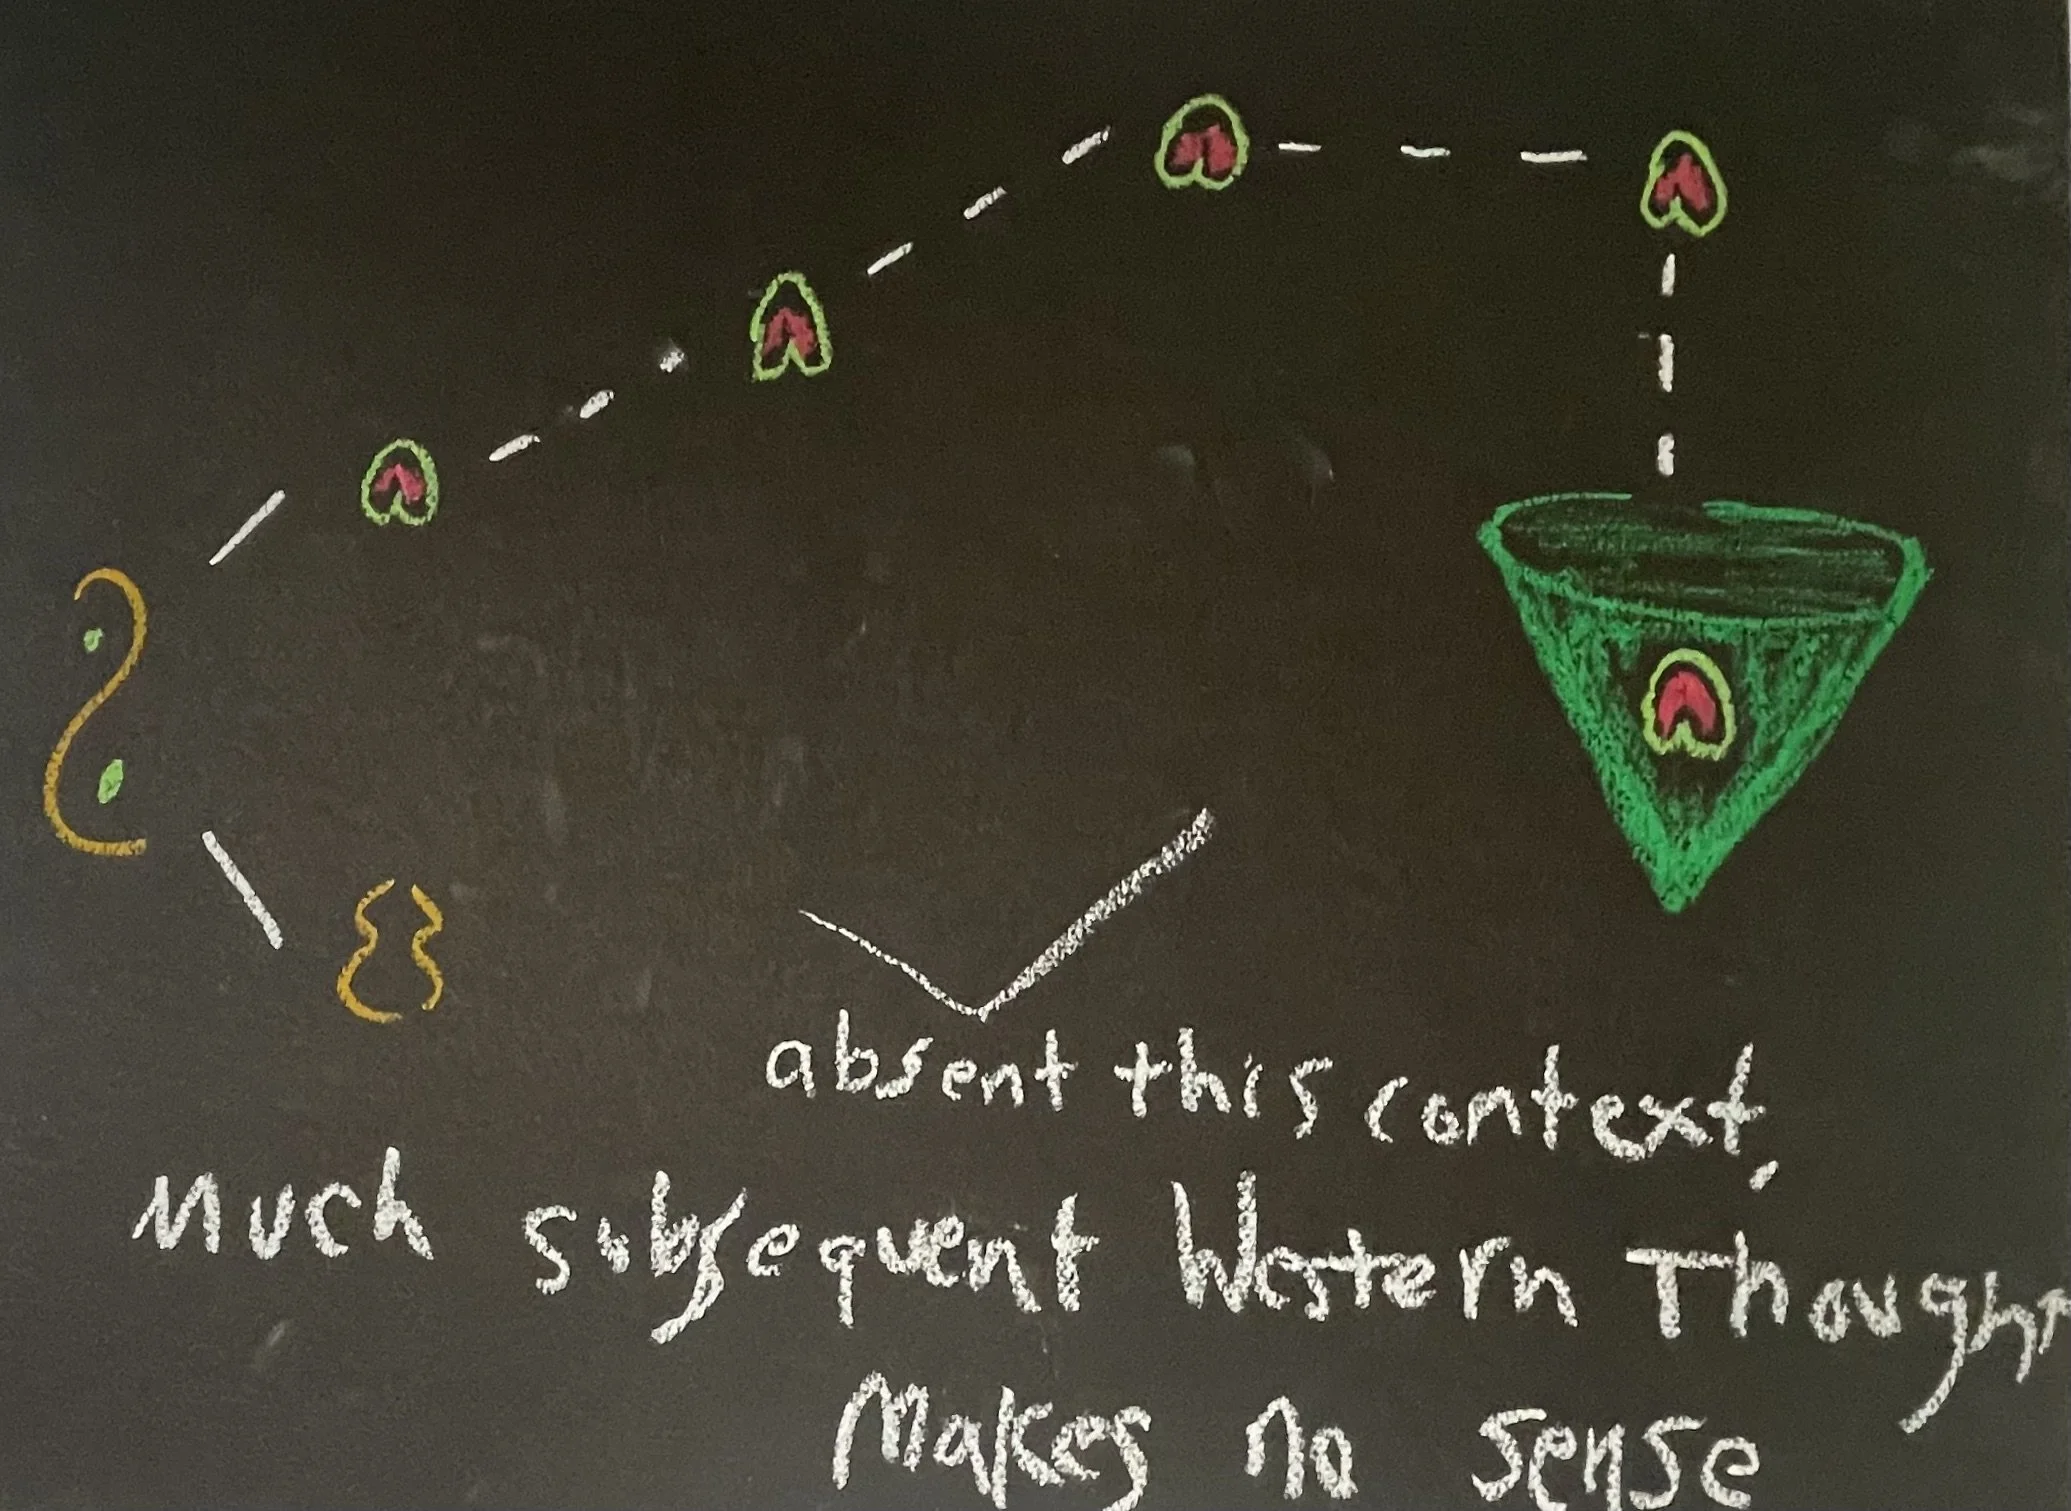 absent this context,
Much subsequent Western Thought
Makes no sense